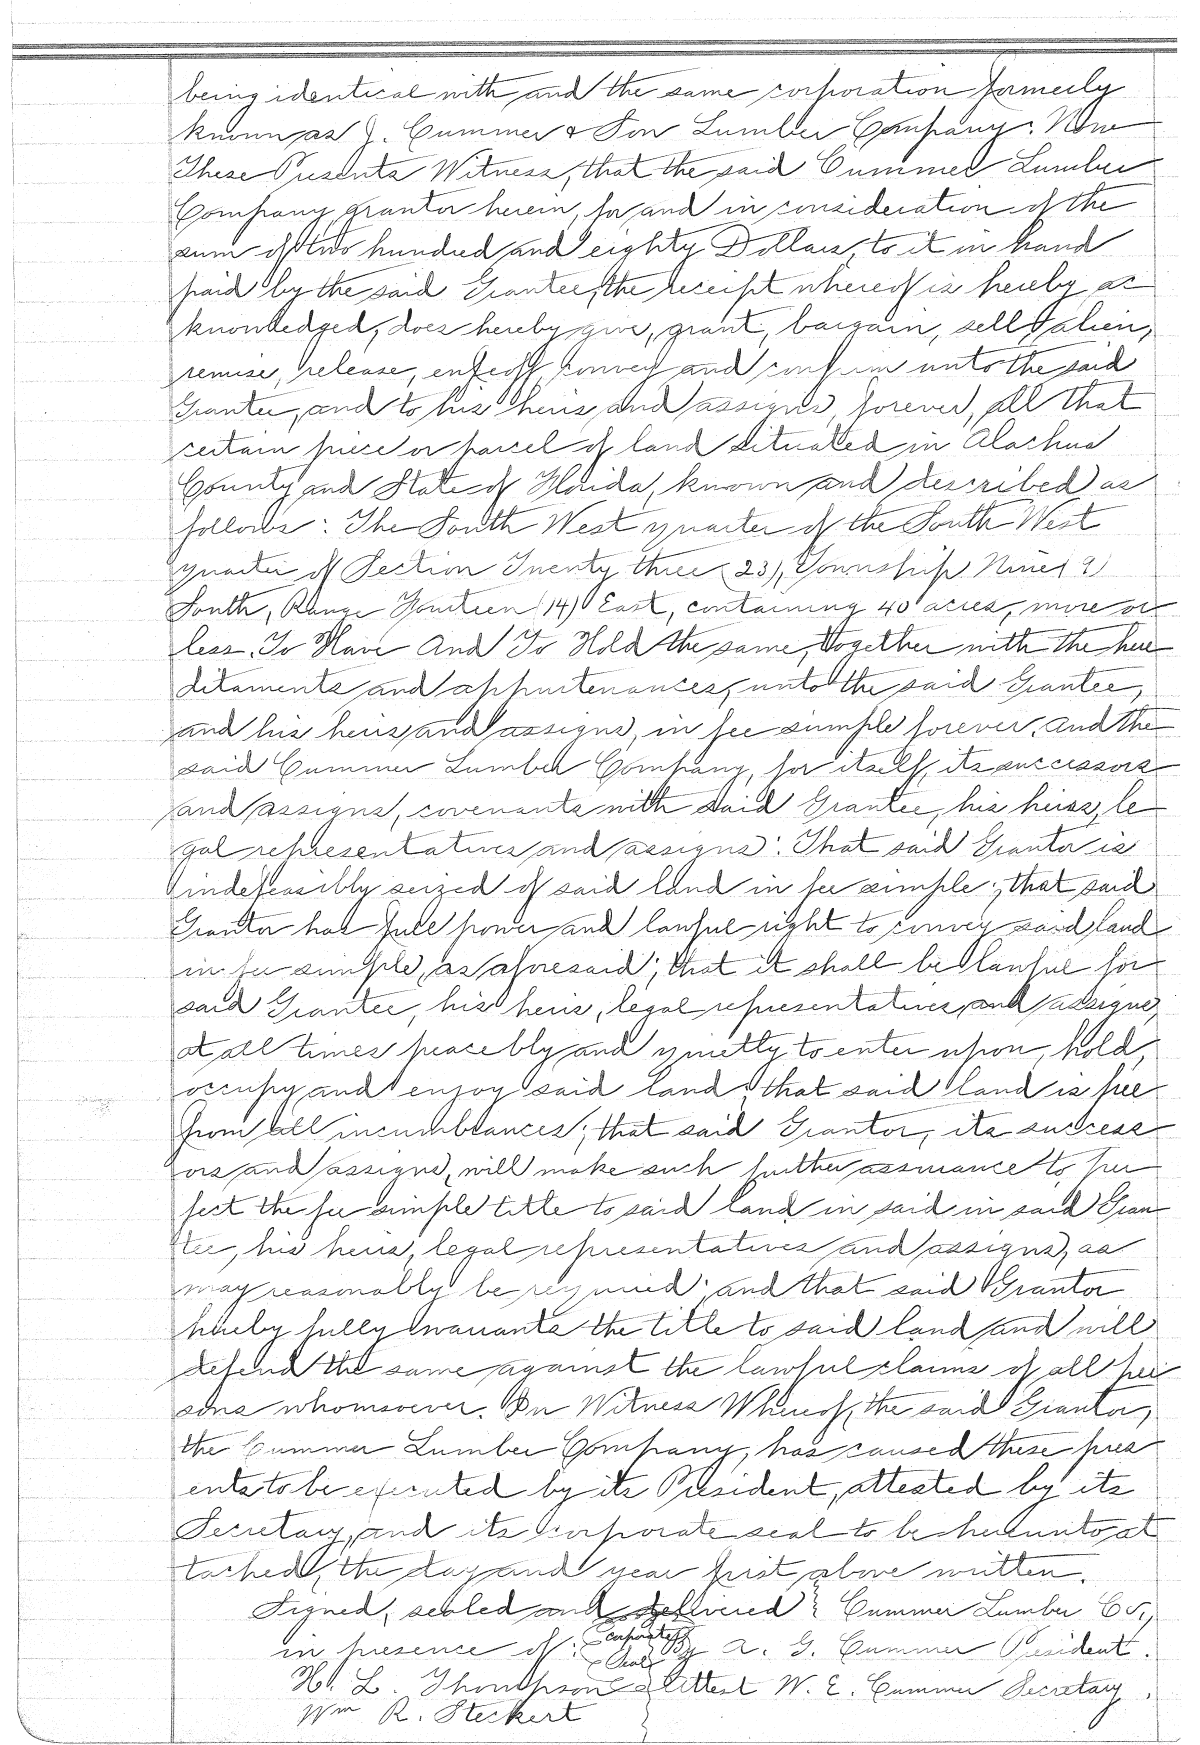 being identical with and the same corporation formerly
known as J. Cummer & Son Lumber Company: Now
These Presents Witness, that the said Cummer Lumber
Company grantor herein, for and in consideration of the
sum of two hundred and eighty Dollars, to it in hand
paid by the said Grantee, the receipt whereof is hereby ac
knowledged, does hereby give, grant, bargain, sell, alien,
remise, release, enfeoff, convey and confirm unto the said
Grantee, and to his heirs and assigns, forever, all that
certain piece or parcel of land situated in Alachua
County and State of Florida, known and described as
follows: The South West quarter of the South West
quarter of Section Twenty three (23), Township Nine (9)
South, Range Fourteen (14) East, containing 40 acres, more or
less. To Have And To Hold the same, together with the here
ditaments and appurtenances, unto the said Grantee,
and his heirs and assigns, in fee simple forever. And the
said Cummer Lumber Company, for itself, its successors
and assigns, covenants with said Grantee, his heirs, le
gal representatives and assigns: That said Grantor is
indefeasibly seized of said land in fee simple; that said
Grantor has full power and lawful right to convey said land
in fee simple, as aforesaid; that it shall be lawful for
said Grantee, his heirs, legal representatives and assigns,
at all times peacebly and quietly to enter upon, hold,
occupy and enjoy said land; that said land is free
from all incumbrances; that said Grantor, its success
ors and assigns, will make such further assurance to per
fect the fee simple title to said land in said in said Gran
tee, his heirs, legal representatives and assigns, as
may reasonably be required; and that said Grantor
hereby fully warrants the title to said land and will
defend the same against the lawful claims of all per
sons whomsoever. In Witness Whereof, the said Grantor,
the Cummer Lumber Company, has caused these pres
ents to be executed by its President, attested by its
Secretary, and its corporate seal to be hereunto at
tached, the day and year first above written.
Signed, sealed and delivered } Cummer Lumber Co.,
in presence of: (corporate Seal) By A. G. Cummer President.
H. L. Thompson } Attest W. E. Cummer Secretary.
Wm R. Steckert